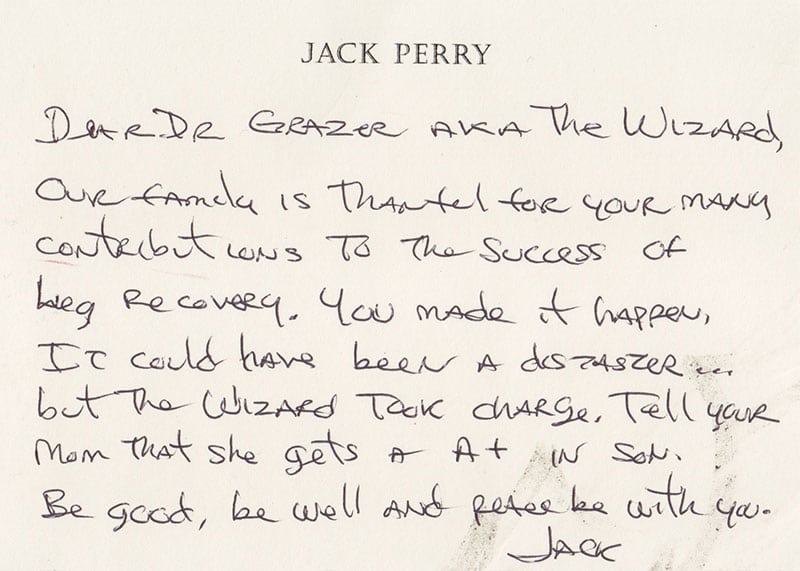 JACK PERRY
Dear Dr Grazer AKA The Wizard,
Our family is thankful for your many
contributions to the success of
recovery. You made it happen,
It could have been a disaster...
but the Wizard took charge. Tell your
Mom that she gets a A+ in son.
Be good, be well and peace be with you.
Jack